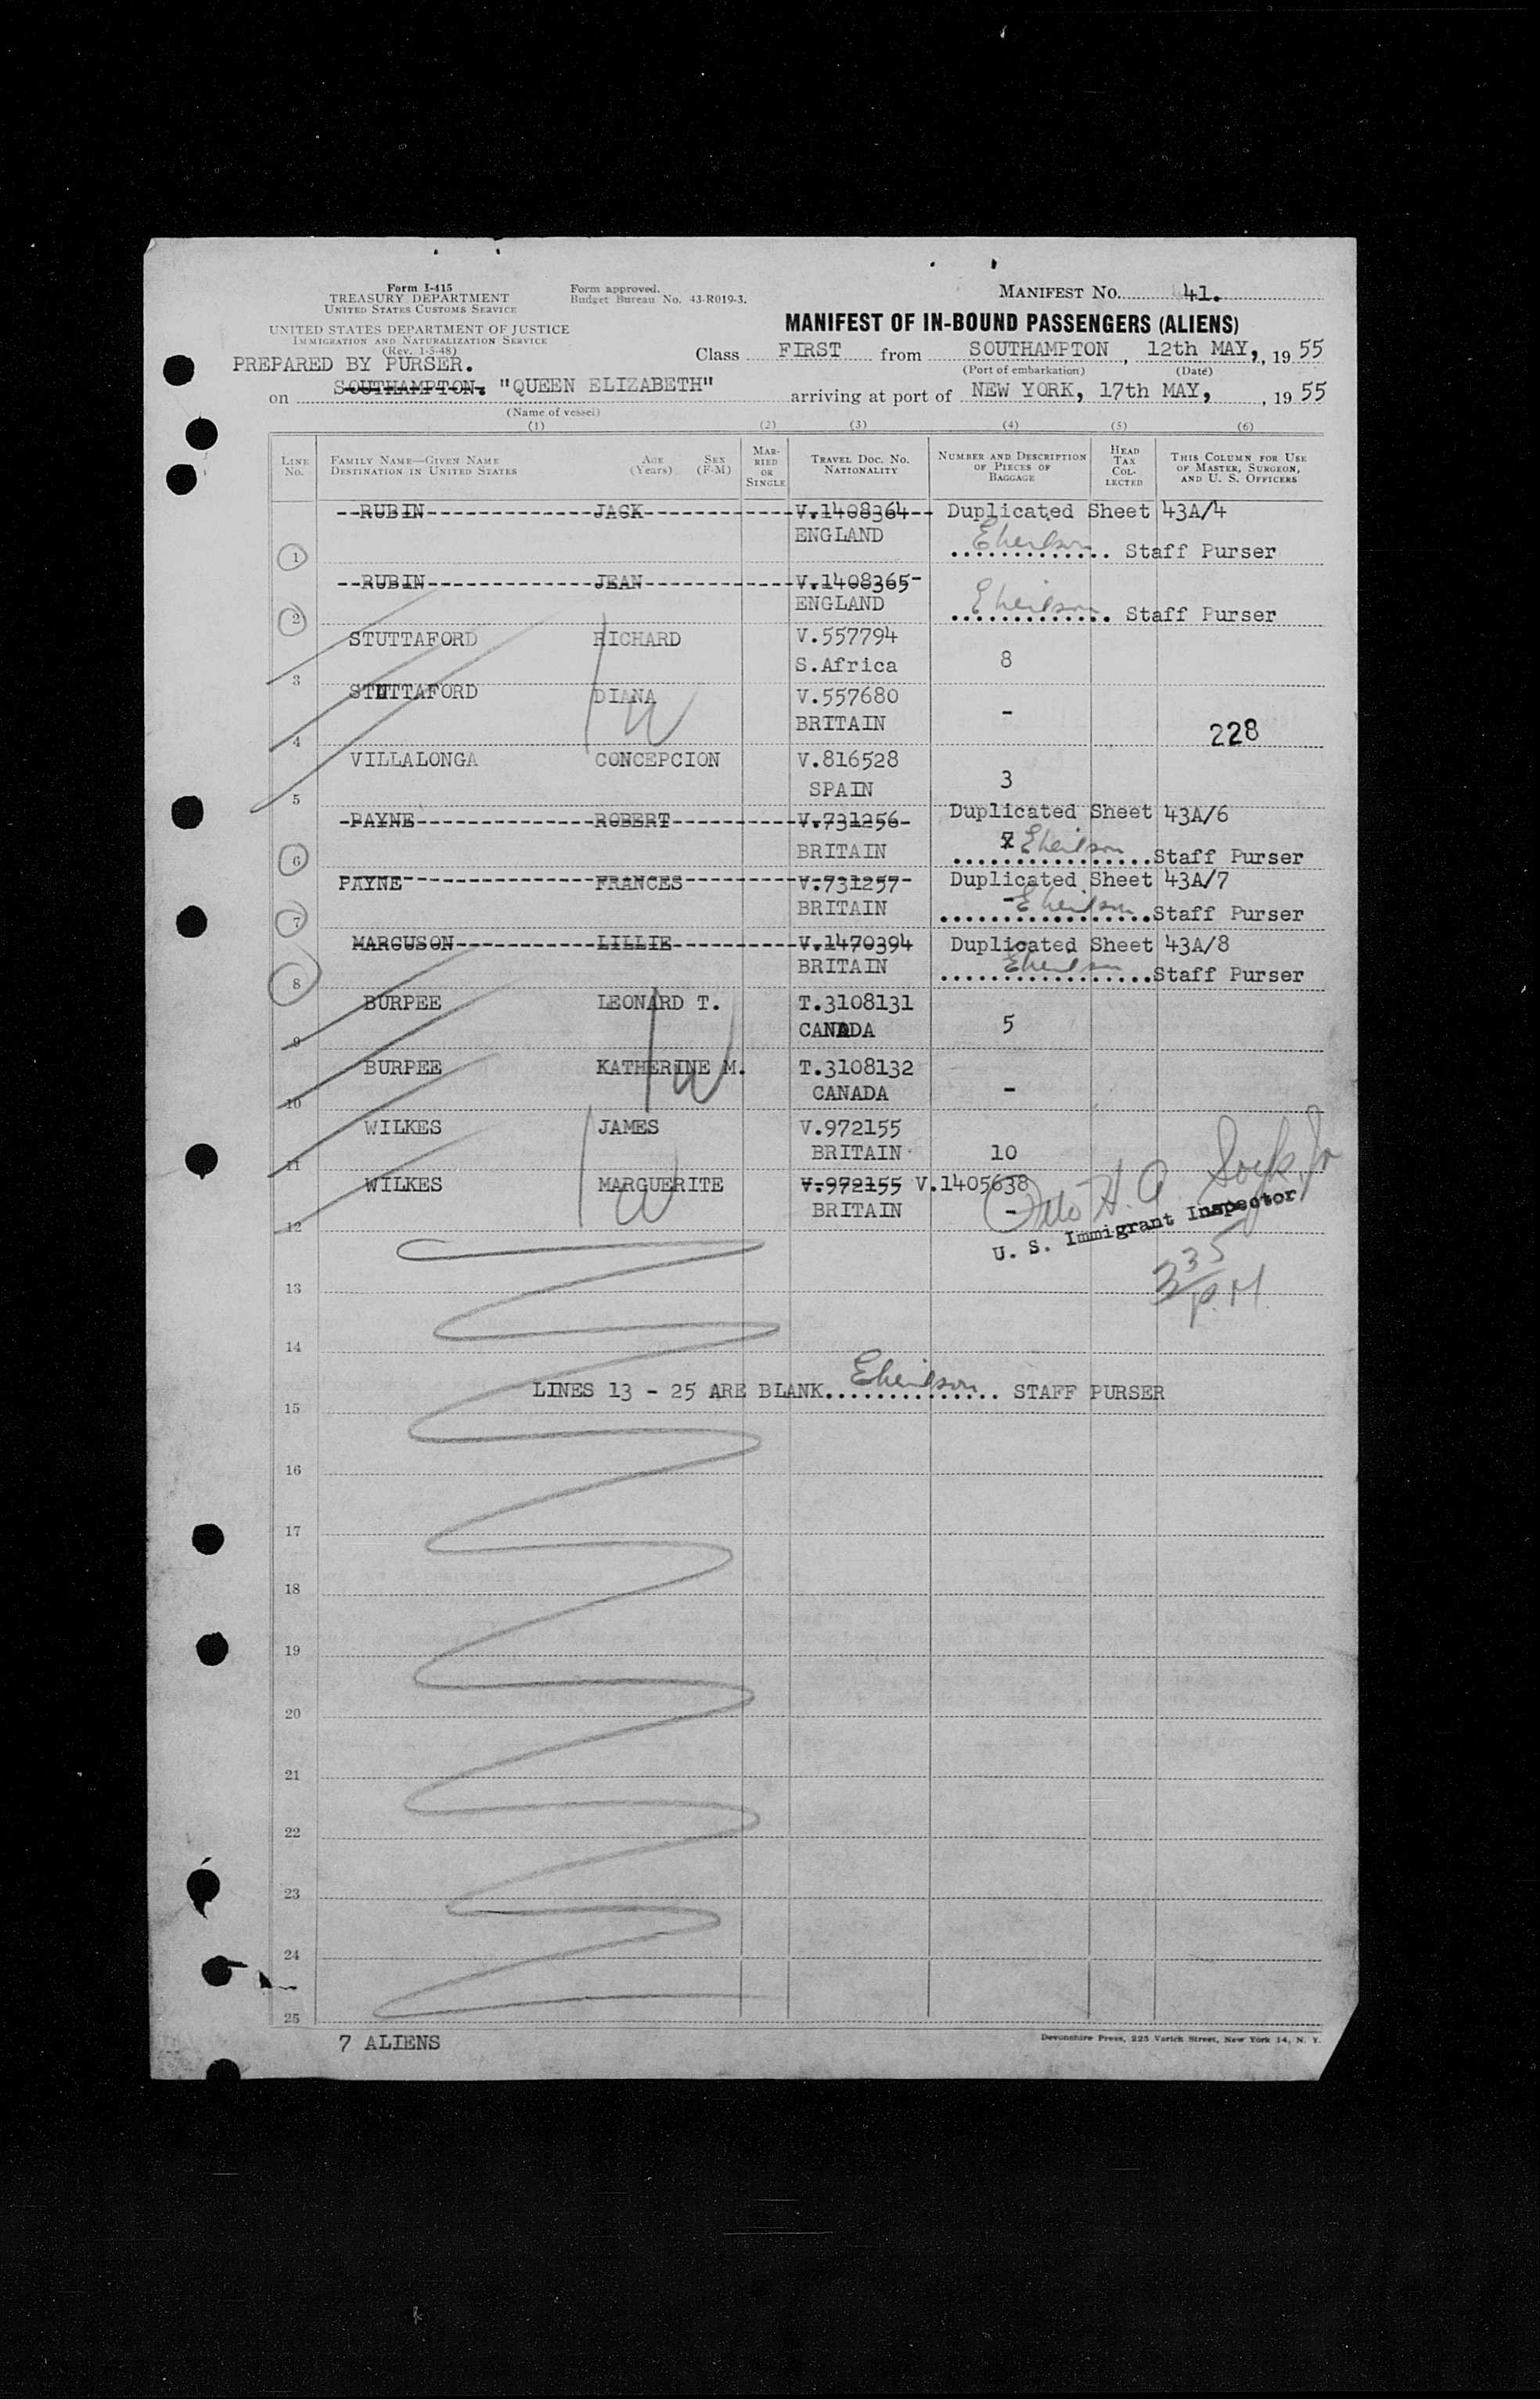 Form I-415
TREASURY DEPARTMENT
UNITED STATES CUSTOMS SERVICE
Form approved.
Budget Bureau No. 43-R019-3.
MANIFEST NO. 41.
UNITED STATES DEPARTMENT OF JUSTICE
IMMIGRATION AND NATURALIZATION SERVICE
(Rev. 1-5-48)
PREPARED BY PURSER.
MANIFEST OF IN-BOUND PASSENGERS (ALIENS)
Class FIRST from SOUTHAMPTON, 12th MAY, 1955
(Port of embarkation) (Date)
on SOUTHAMPTON. "QUEEN ELIZABETH" arriving at port of NEW YORK, 17th MAY, 1955
(Name of vessel)
(1) (2) (3) (4) (5) (6)
LINE NO. FAMILY NAME—GIVEN NAME DESTINATION IN UNITED STATES AGE (Years) SEX (F-M) MARRIED OR SINGLE TRAVEL DOC. NO. NATIONALITY NUMBER AND DESCRIPTION OF PIECES OF BAGGAGE HEAD TAX COLLECTED THIS COLUMN FOR USE OF MASTER, SURGEON, AND U. S. OFFICERS
--RUBIN-----------JACK-----------V.1408364-- Duplicated Sheet 43A/4
1 ENGLAND ............. Staff Purser
--RUBIN-----------JEAN-----------V.1408365-
2 ENGLAND ............. Staff Purser
STUTTAFORD RICHARD V.557794
3 S.Africa 8
STUTTAFORD DIANA V.557680
4 BRITAIN - 228
VILLALONGA CONCEPCION V.816528
5 SPAIN 3
-PAYNE-----------ROBERT----------V.731256- Duplicated Sheet 43A/6
6 BRITAIN .................Staff Purser
PAYNE-----------FRANCES---------V.731257- Duplicated Sheet 43A/7
7 BRITAIN .................Staff Purser
MARCUSON-----------LILLIE----------V.1470394 Duplicated Sheet 43A/8
8 BRITAIN .................Staff Purser
BURPEE LEONARD T. T.3108131
9 CANADA 5
BURPEE KATHERINE M. T.3108132
10 CANADA -
WILKES JAMES V.972155
11 BRITAIN 10
WILKES MARGUERITE V.972155 V.1405638
12 BRITAIN -
U. S. Immigrant Inspector
3 35 P.M.
13
14
LINES 13 - 25 ARE BLANK.............. STAFF PURSER
15
16
17
18
19
20
21
22
23
24
25
7 ALIENS
Devonshire Press, 225 Varick Street, New York 14, N. Y.